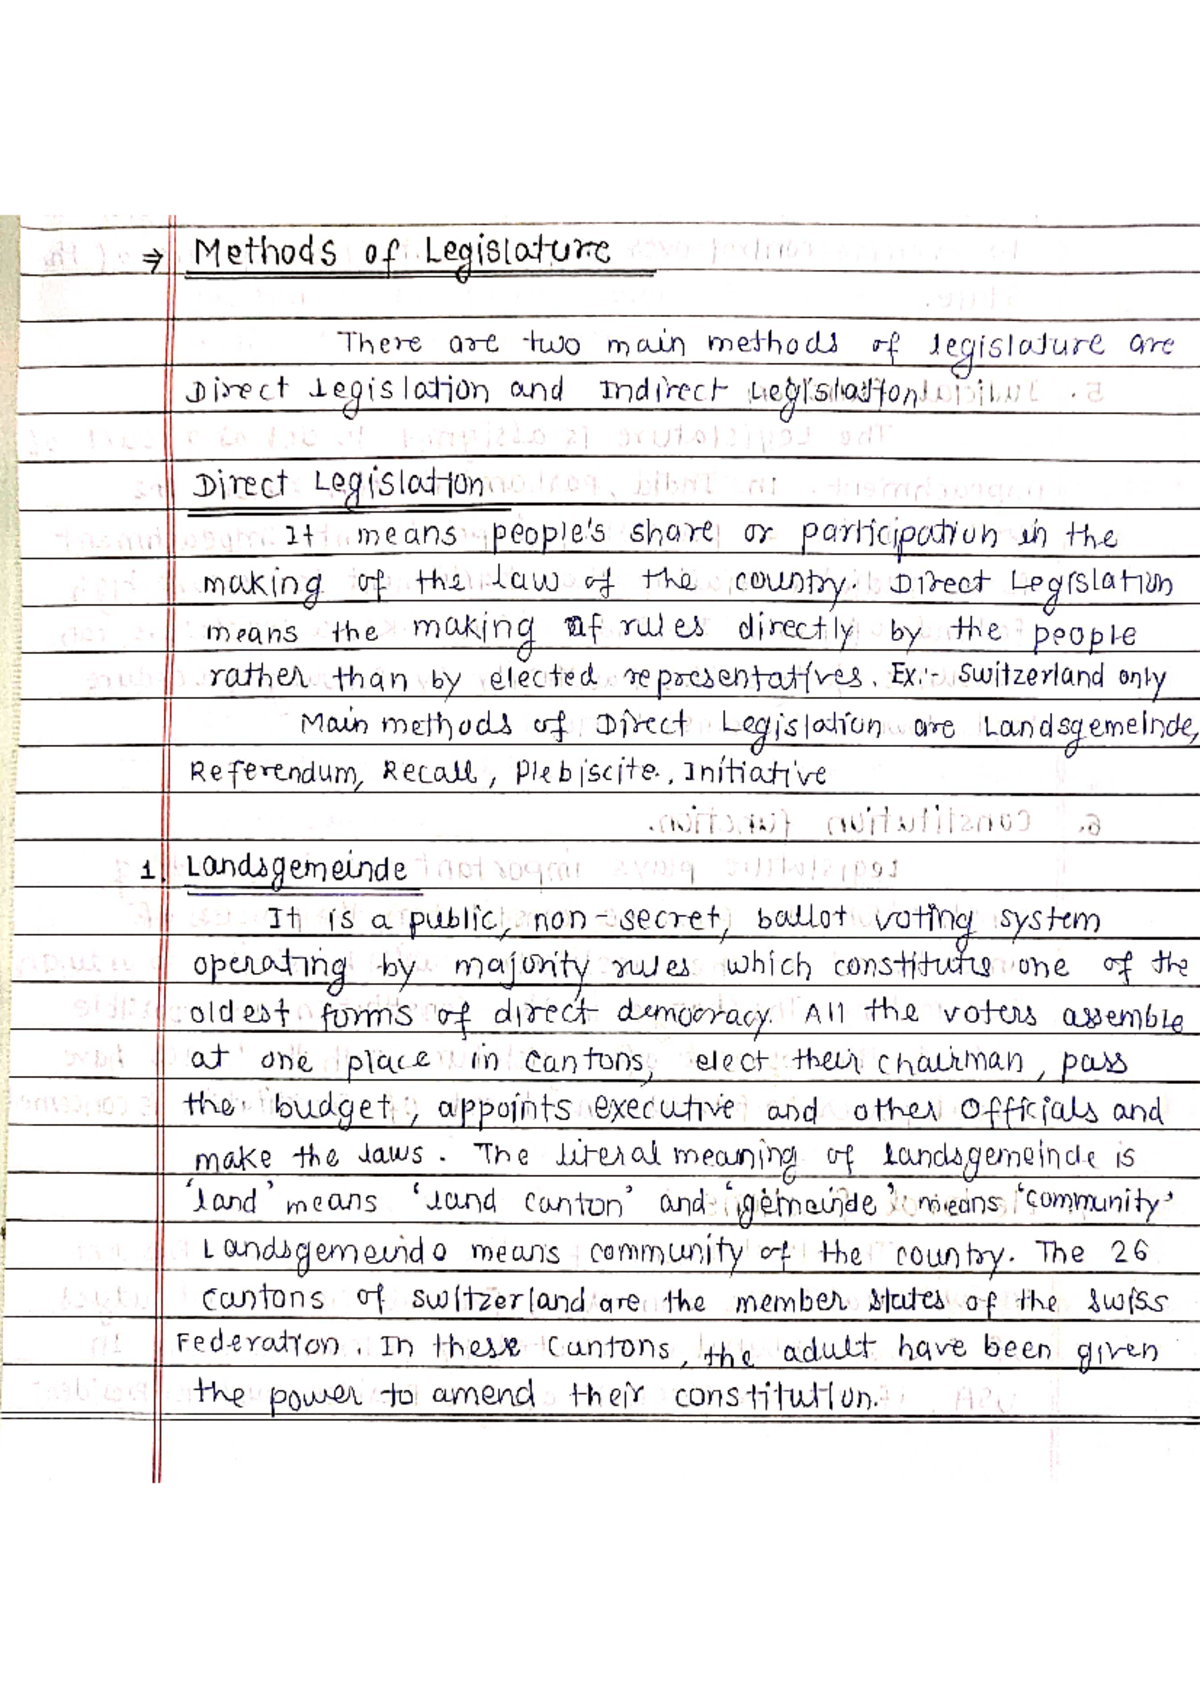 ⇒ Methods of Legislature
There are two main methods of legislature are
Direct Legislation and Indirect Legislation
Direct Legislation
It means people's share or participation in the
making of the law of the country. Direct Legislation
means the making of rules directly by the people
rather than by elected representatives. Ex:- Switzerland only
Main methods of Direct Legislation are Landsgemeinde,
Referendum, Recall, Plebiscite, Initiative
1. Landsgemeinde
It is a public, non-secret, ballot voting system
operating by majority rules which constitutes one of the
oldest forms of direct democracy. All the voters assemble
at one place in cantons, elect their chairman, pass
the budget, appoints executive and other officials and
make the laws. The literal meaning of landsgemeinde is
'land' means 'land canton' and 'gemeinde' means 'community'
Landsgemeindo means community of the country. The 26
cantons of switzerland are the member states of the swiss
Federation. In these Cantons, the adult have been given
the power to amend their constitution.